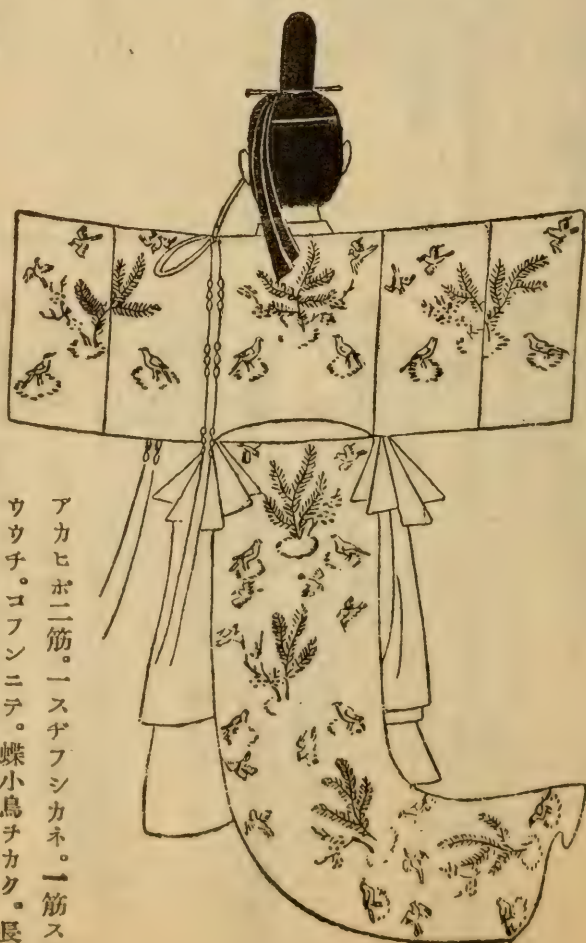 アカヒボ二筋。一スヂフシカネ。一筋ス
ウウチ。コフンニテ。蝶小鳥ヲカク。長